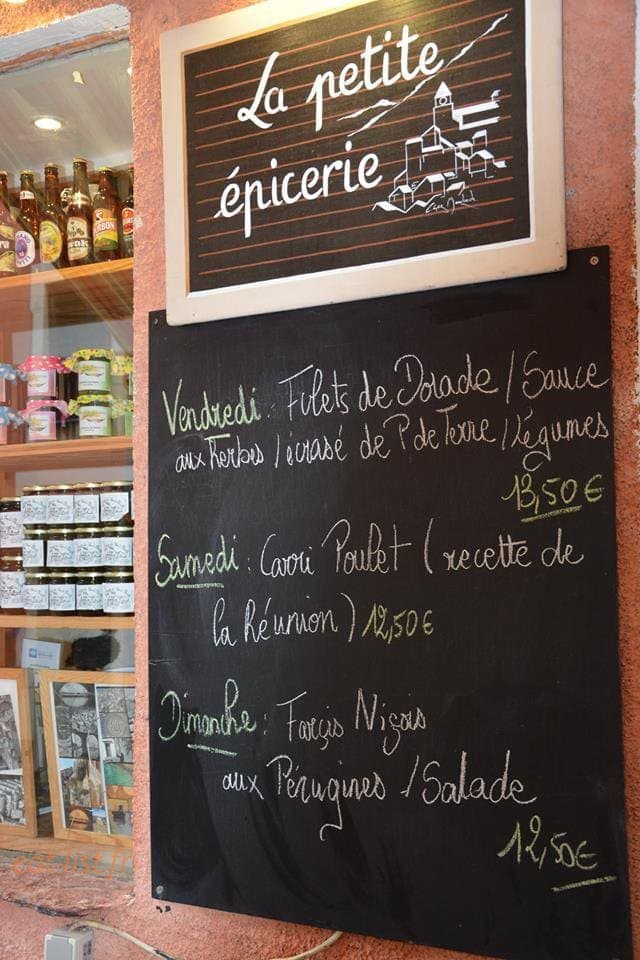 La petite
épicerie
Vendredi : Filets de Dorade / Sauce
aux Herbes / écrasé de P. de Terre / légumes
13,50 €
Samedi : Carri Poulet ( recette de
la Réunion ) 12,50 €
Dimanche : Farçis Niçois
aux Pérugines / Salade
12,50 €